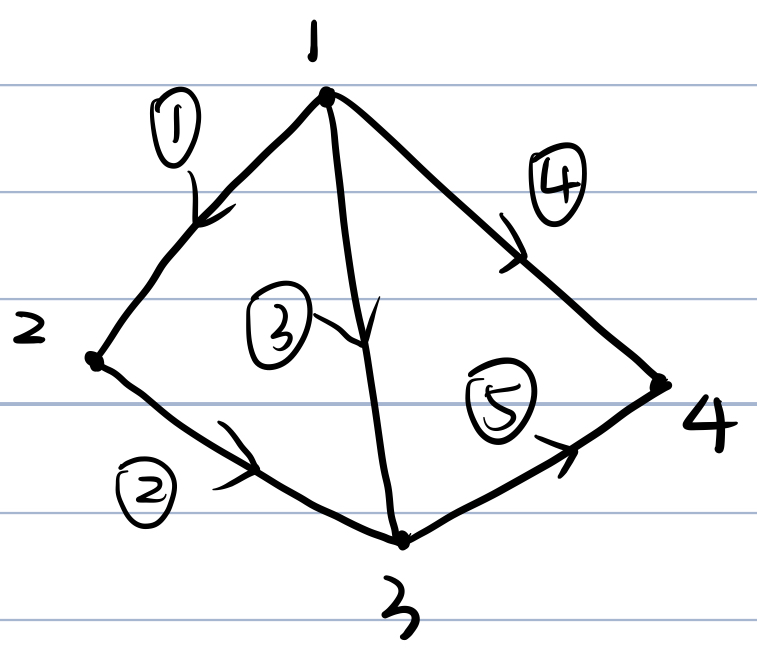 1
①
④
2
③
⑤
4
②
3